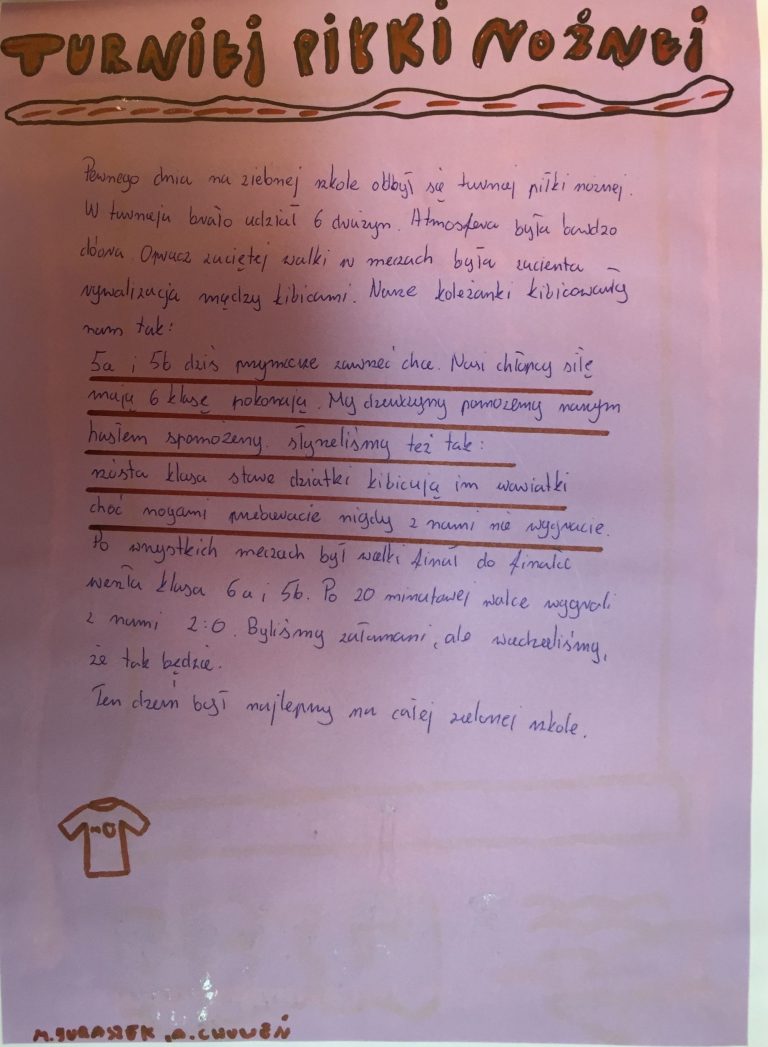 TURNIEJ PIŁKI NOŻNEJ
Pewnego dnia na zielonej szkole odbył się turniej piłki nożnej.
W turnieju brało udział 6 drużyn. Atmosfera była bardzo
dobra. Oprucz zaciętej walki w meczach była zacienta
rywalizacja między kibicami. Nasze koleżanki kibicowały
nam tak:
5a i 5b dziś przymierze zawrzeć chce. Nasi chłopcy siłę
mają 6 klasę pokonają. My dziewczyny pomożemy naszym
hasłem spomożemy. słyszeliśmy też tak:
szósta klasa stare dziatki kibicują im wariatki
choć nogami przebieracie nigdy z nami nie wygracie.
Po wszystkich meczach był wielki finał do finału
weszła klasa 6a i 5b. Po 20 minutowej walce wygrali
z nami 2:0. Byliśmy załamani, ale wiedzieliśmy,
że tak będzie.
Ten dzień był najlepszy na całej zielonej szkole.
M. JURASZEK, A. CHUWEŃ